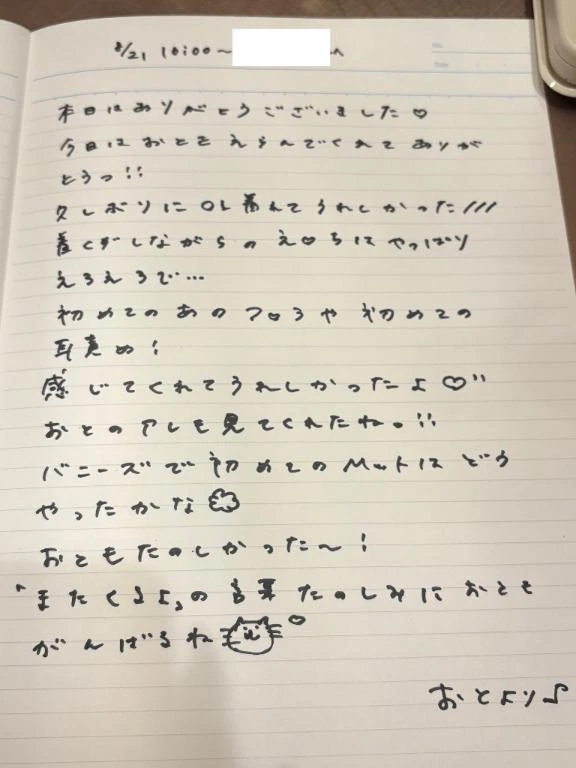 8/21 10:00〜 へ
本日はありがとうございました♡
今日はおとをえらんでくれてありが
とうっ!!
久しぶりにOL着んてうれしかった///
着くずしながらのえ♡ちはやっぱり
えろえろで…
初めてのあのフ♡ラや初めての
耳責め!
感じてくれてうれしかったよ♡"
おとのアレも見てくれたね。!!
バニーズで初めてのMットはどう
やったかな
おともたのしかった〜!
「またくるよ」の言葉たのしみにおとも
がんばるね♡
おとより♪